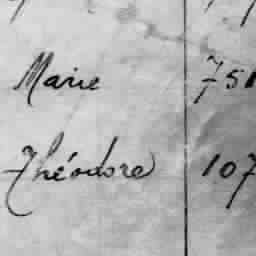 Marie 751
Théodore 107